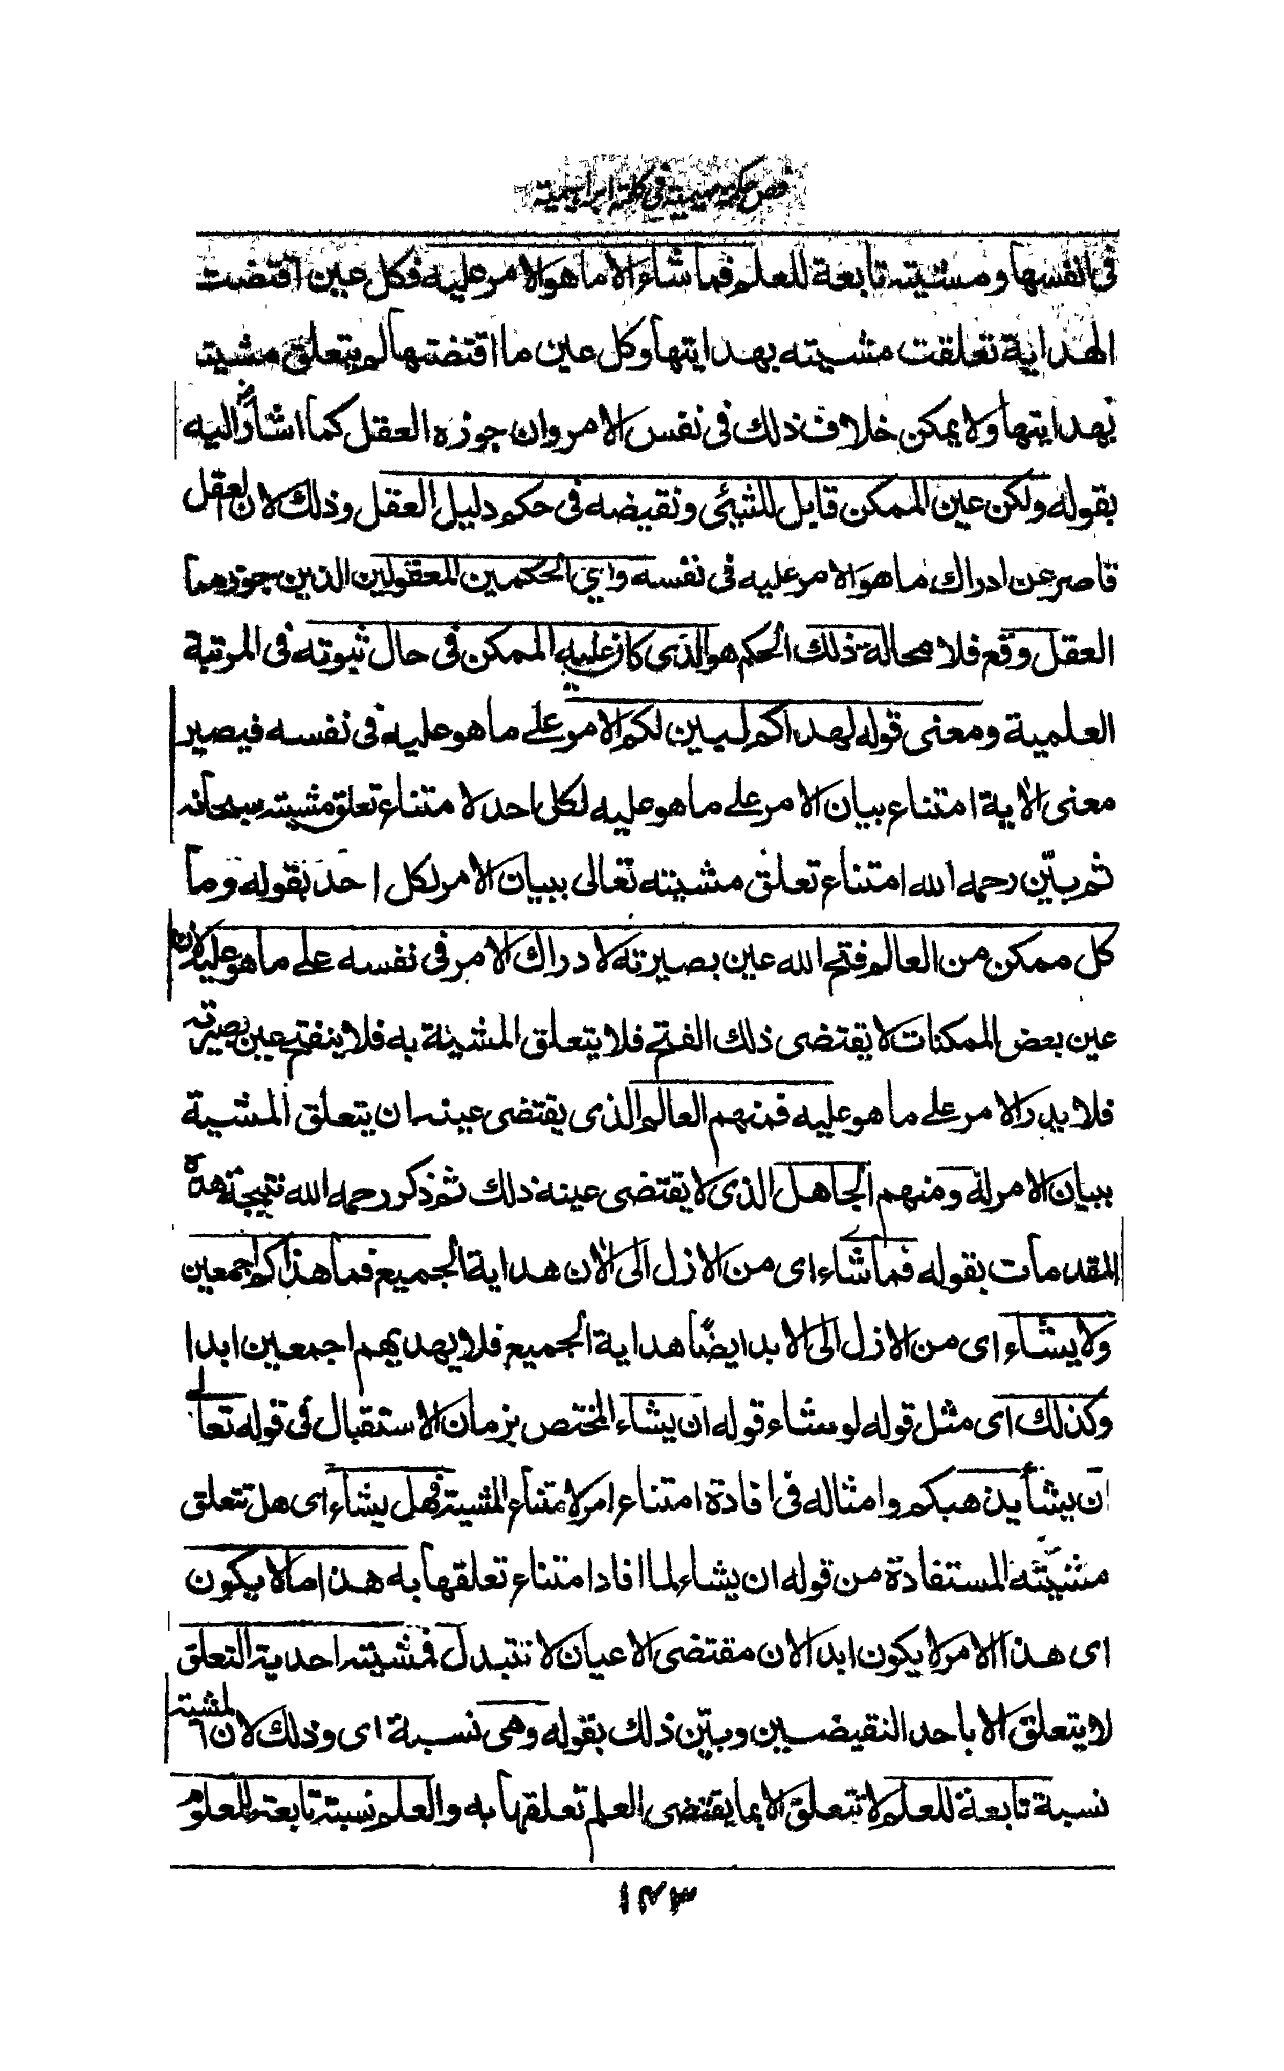 فص حكمة مهيمية فى كلمة ابراهيمية
فى انفسها ومشيته تابعة للعلم فما شاء الا ما هو الامر عليه فكل عين اقتضت
الهداية تعلقت مشيته بهدايتها وكل عين ما اقتضتها لم يتعلق مشيته
بهدايتها ولا يمكن خلاف ذلك فى نفس الامر وان جوزه العقل كما اشار اليه
بقوله ولكن عين الممكن قابل للشئ ونقيضه فى حكم دليل العقل وذلك لان العقل
قاصر عن ادراك ما هو الامر عليه فى نفسه واى الحكمين المعقولين الذين جوزهما
العقل وقع فلا محالة ذلك الحكم هو الذى كان عليه الممكن فى حال ثبوته فى المرتبة
العلمية ومعنى قوله لهداكم لبين لكم الامر على ما هو عليه فى نفسه فيصير
معنى الاية امتناع بيان الامر على ما هو عليه لكل احد لامتناع تعلق مشيته سبحانه
ثم بيّن رحمه الله امتناع تعلق مشيته تعالى ببيان الامر لكل احد بقوله وما
كل ممكن من العالم فتح الله عين بصيرته لادراك الامر فى نفسه على ما هو عليه لان
عين بعض الممكنات لا يقتضى ذلك الفتح فلا يتعلق المشية به فلا ينفتح عين بصيرته
فلا يدرك الامر على ما هو عليه فمنهم العالم الذى يقتضى عينه ان يتعلق المشية
ببيان الامر له ومنهم الجاهل الذى لا يقتضى عينه ذلك ثم ذكر رحمه الله نتيجة هذه
المقدمات بقوله فما شاء اى من الازل الى الان هداية الجميع فما هداكم اجمعين
ولا يشاء اى من الازل الى الابد ايضًا هداية الجميع فلا يهديهم اجمعين ابدا
وكذلك اى مثل قوله لو شاء قوله ان يشاء المختص بزمان الاستقبال فى قوله تعالى
ان يشأ يذهبكم وامثاله فى افادة امتناع امر لامتناع المشية فهل يشاء اى هل تتعلق
مشيّته المستفادة من قوله ان يشاء لما افاد امتناع تعلقها به هذا ما لا يكون
اى هذا الامر لا يكون ابدا لان مقتضى الاعيان لا تتبدل فمشيته احدية التعلق
لا يتعلق الا باحد النقيضين وبيّن ذلك بقوله وهى نسبة اى وذلك لان المشية
نسبة تابعة للعلم لا تتعلق الا بما يقتضى العلم تعلقها به والعلم نسبة تابعة للمعلوم
١٤٣